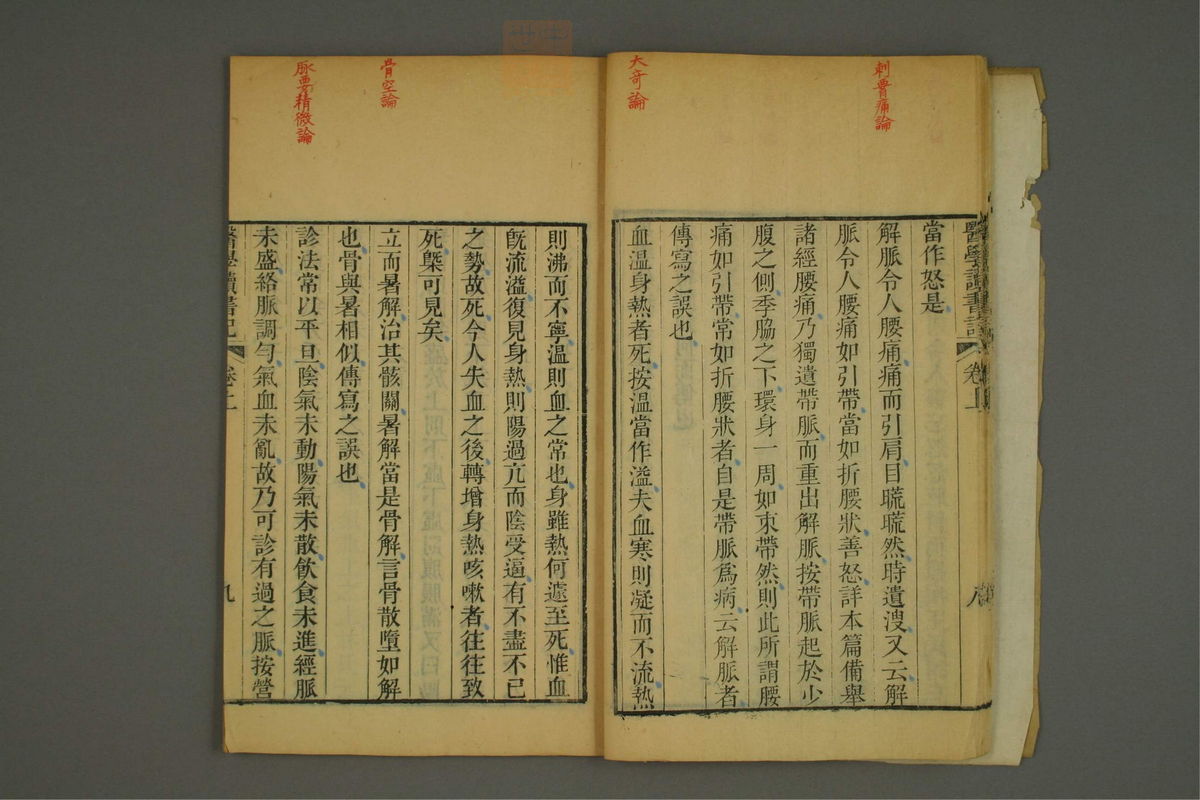 刺要痛論
大奇論
醫學讀書記 卷上
當作怒是
解脈令人腰痛痛而引肩目䀮䀮然時遺溲又云解
脈令人腰痛如引帶當如折腰狀善怒詳本篇備舉
諸經腰痛乃獨遺帶脈而重出解脈按帶脈起於少
腹之側季脇之下環身一周如束帶然則此所謂腰
痛如引帶常如折腰狀者自是帶脈爲病云解脈者
傳寫之誤也
血温身熱者死按温當作溢夫血寒則凝而不流熱
骨空論
脉要精微論
則沸而不寧温則血之常也身雖熱何遽至死惟血
旣流溢復見身熱則陽過亢而陰受逼有不盡不已
之勢故死今人失血之後轉增身熱咳嗽者往往致
死槩可見矣
立而暑解治其骸關暑解當是骨解言骨散墮如解
也骨與暑相似傳寫之誤也
診法常以平旦陰氣未動陽氣未散飲食未進經脈
未盛絡脈調勻氣血未亂故乃可診有過之脈按營
醫學讀書記 卷上 九